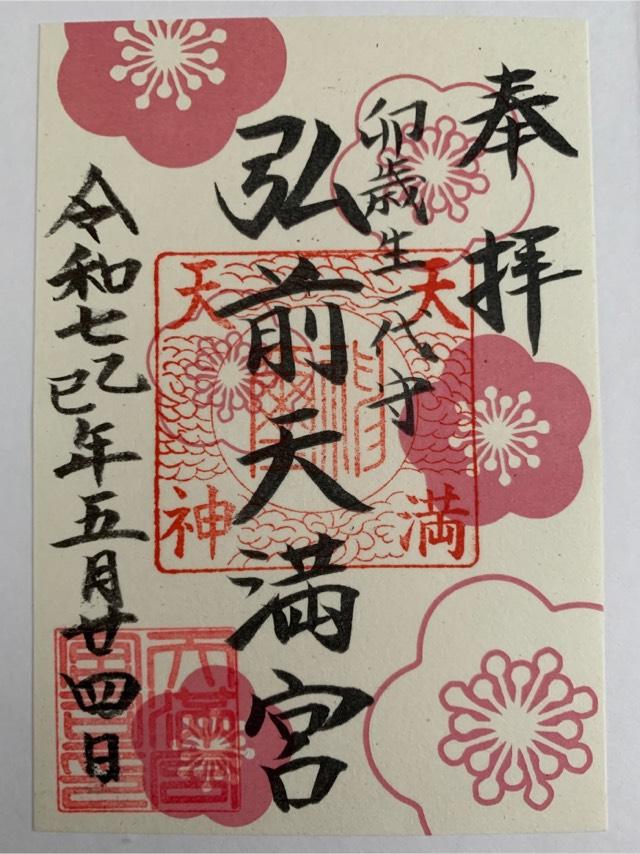 奉拝
卯歳生一代守
弘前天満宮
令和七乙巳年五月廿四日
天満
天神